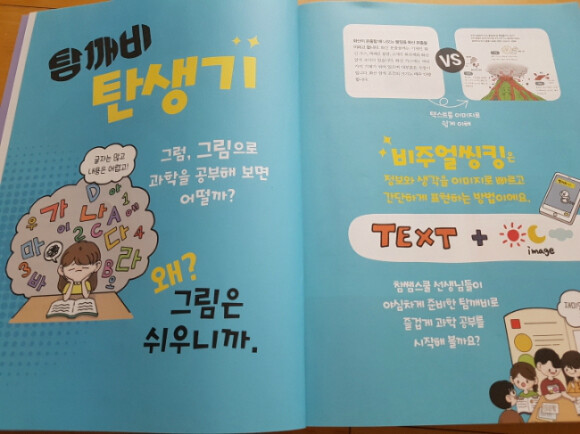 탐깨비
탄생기
글자는 많고
내용은 어렵고!
그럼, 그림으로
과학을 공부해 보면
어떨까?
가 나 D 아 1
우 이 2 C A 다
마 4
3 바 B 라
왜?
그림은
쉬우니까.
VS
텍스트를 이미지로
쉽게 이해
비주얼씽킹은
정보와 생각을 이미지로 빠르고
간단하게 표현하는 방법이에요.
TEXT +
image
참쌤스쿨 선생님들이
야심차게 준비한 탐깨비로
즐겁게 과학 공부를
시작해 볼까요?